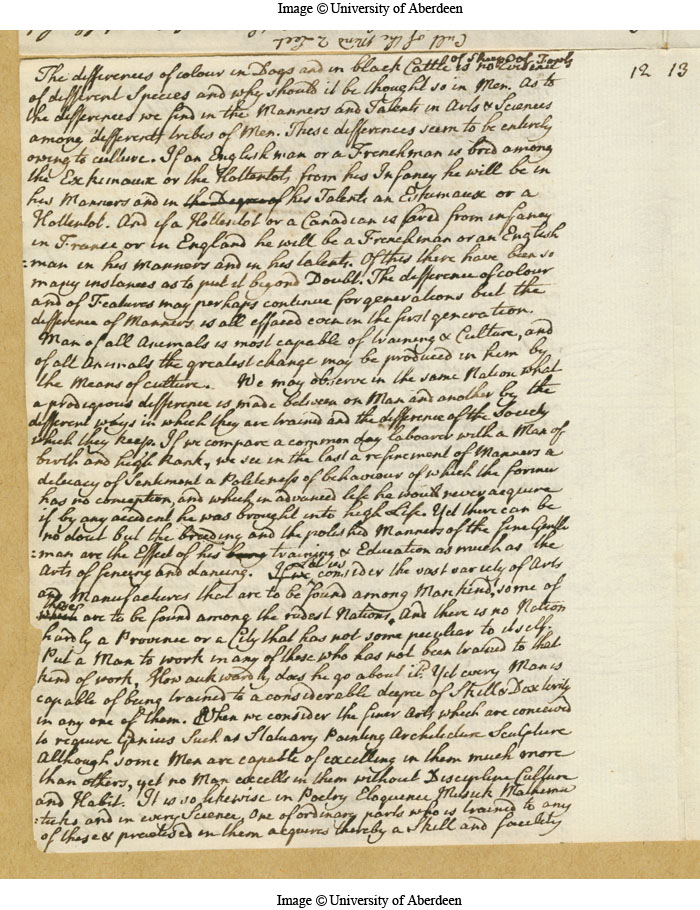 Image © University of Aberdeen
Cult of the Mind 2 Lect
of Sheep of Fowls
The differences of colour in Dogs and in black Cattle is no Evidence
of different Species and why should it be thought so in Men. As to
the differences we find in the Manners and Talents in Arts & Sciences
among different tribes of Men. These differences seem to be entirely
owing to culture. If an English man or a Frenchman is bred among
the Exkimaux or the Hottentot from his Infancy he will be in
his Manners and in the Degree of his Talents an Eskimaux or a
Hottentot. And if a Hottentot or a Canadian is bred from infancy
in France or in England he will be a Frenchman or an English
=man in his Manners and in his talents. Of this there have been so
many instances as to put it beyond Doubt. The difference of colour
and of Features may perhaps continue for generations but the
difference of Manners is all effaced even in the first generation.
Man of all Animals is most capable of training & Culture, and
of all Animals the greatest change may be produced in him by
the Means of culture. We may observe in the same Nation what
a prodigious difference is made between on Man and another by the
different ways in which they are trained and the difference of the Society
which they keep. If we compare a common day labourer with a Man of
birth and high Rank, we see in the last a refinement of Manners a
delicacy of Sentiment a Politeness of behaviour of which the former
has no conception, and which in advanced life he would never acquire
if by any accident he was brought into high Life. Yet there can be
no dout but the breeding and the polished Manners of the fine Gentle
=man are the Effect of his being training & Education as much as the
Arts of fencing and dancing. If we let us consider the vast variety of Arts
and Manufactures that are to be found among Mankind, some of
which these are to be found among the rudest Nations, and there is no Nation
hardly a Province or a City that has not some peculiar to itself.
Put a Man to work in any of these who has not been trained to that
kind of work, How aukwardly does he go about it? Yet every Man is
capable of being trained to a considerable degree of Skill & Dexterity
in any one of them. When we consider the finer Arts which are conceived
to require Genius Such as Statuary Painting Architecture Sculpture
Although some Men are capable of excelling in them much more
than others, yet no Man excells in them without Discipline Culture
and Habit. It is so likewise in Poetry Eloquence Musick Mathema
:ticks and in every Science. One of ordinary parts who is trained to any
of these & practised in them acquires thereby a Skill and facility
12 13
Image © University of Aberdeen